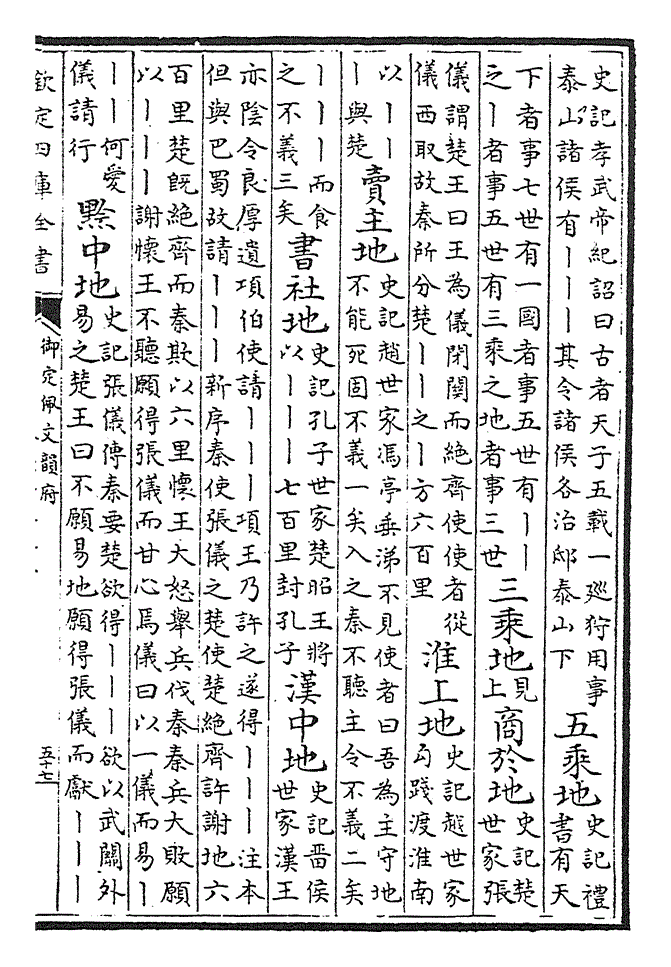 史記孝武帝紀詔曰古者天子五載一廵狩用事
泰山諸侯有丨丨丨其令諸侯各治邸泰山下
五乘地
史記禮
書有天
下者事七世有一國者事五世有丨丨
之丨者事五世有三乘之地者事三世
三乘地
見
上
商於地
史記楚
世家張
儀謂楚王曰王為儀閉關而絶齊使使者從
儀西取故秦所分楚丨丨之丨方六百里
淮上地
史記越世家
勾踐渡淮南
以丨丨
丨與楚
賣主地
史記趙世家馮亭垂涕不見使者曰吾為主守地
不能死固不義一矣入之秦不聽主令不義二矣
丨丨丨而食
之不義三矣
書社地
史記孔子世家楚昭王將
以丨丨丨七百里封孔子
漢中地
史記畱侯
世家漢王
亦隂令良厚遺項伯使請丨丨丨項王乃許之遂得丨丨丨注本
但與巴蜀故請丨丨丨新序秦使張儀之楚使楚絶齊許謝地六
百里楚既絶齊而秦欺以六里懷王大怒舉兵伐秦秦兵大敗願
以丨丨丨謝懷王不聽願得張儀而甘心焉儀曰以一儀而易丨
丨丨何愛
儀請行
黔中地
史記張儀傳秦要楚欲得丨丨丨欲以武關外
易之楚王曰不願易地願得張儀而獻丨丨丨
欽定四庫全書
御定佩文韻府
五十七